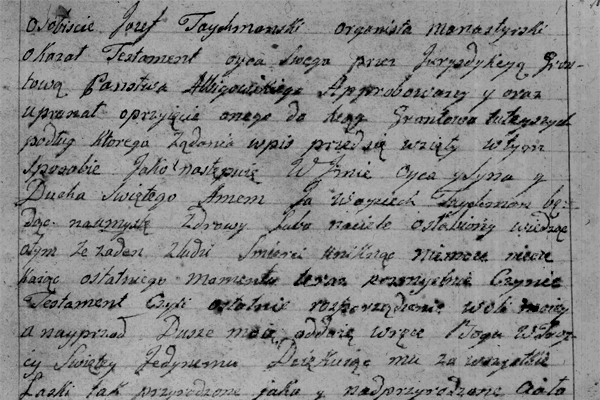 osobiscie Jozef Taychmanski organista monastyrski
okazał Testament oyca swego przez Jurysdykcyą Grun-
tową Panstwa Albigowskiego Approbowany y oraz
upraszał o przyięcie onego do ksiąg Gruntowo tuteyszych
podług ktorego żądania wpis przedsię wzięty w tym
sposobie Jako następuie W Jmie Oyca y Syna y
Ducha Swiętego Amen Ja Woyciech Taychman bę-
dąc na umysle Zdrowy Lubo na ciele osłabiony wiedząc
o tym że żaden z ludzi Smierci uniknąc niemoze nieocze
kaiąc ostatniego momentu teraz przemyslnie Czynie
Testament Czyli ostatnie rozporządzenie woli moiey
a nayprzod Dusze moią oddaię w ręce Bogu w Troy-
cy Swiętey Jedynemu Dziękuiąc mu za wszystkie
Łaski tak przyrodzone jako y nadprzyrodzone Ciało